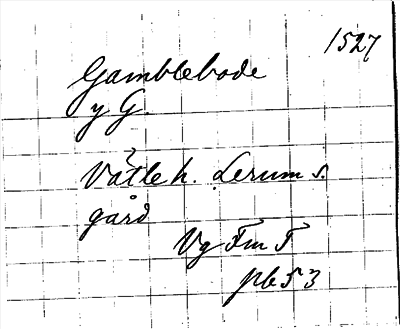 1527
Gamblebode
y G.
Vättle h. Lerum s.
gård
Vg Fm T
pb 53